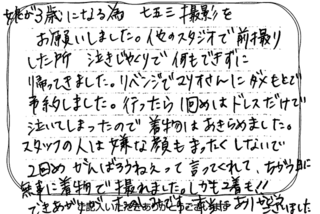 娘が3歳になる為 七五三撮影を
お願いしました。他のスタジオで前撮り
した所 泣きじゃくりで何もできずに
帰ってきました。リベンジでマリオさんにダメもとで
予約しました。行ったら1回めはドレスだけで
泣いてしまったので着物はあきらめました。
スタッフの人は嫌な顔もまったくしないで
2回め がんばろうねぇって言ってくれて、ちがう日に
無事に着物で撮れました。しかも2着も!!
できあがりも ありがとうございました